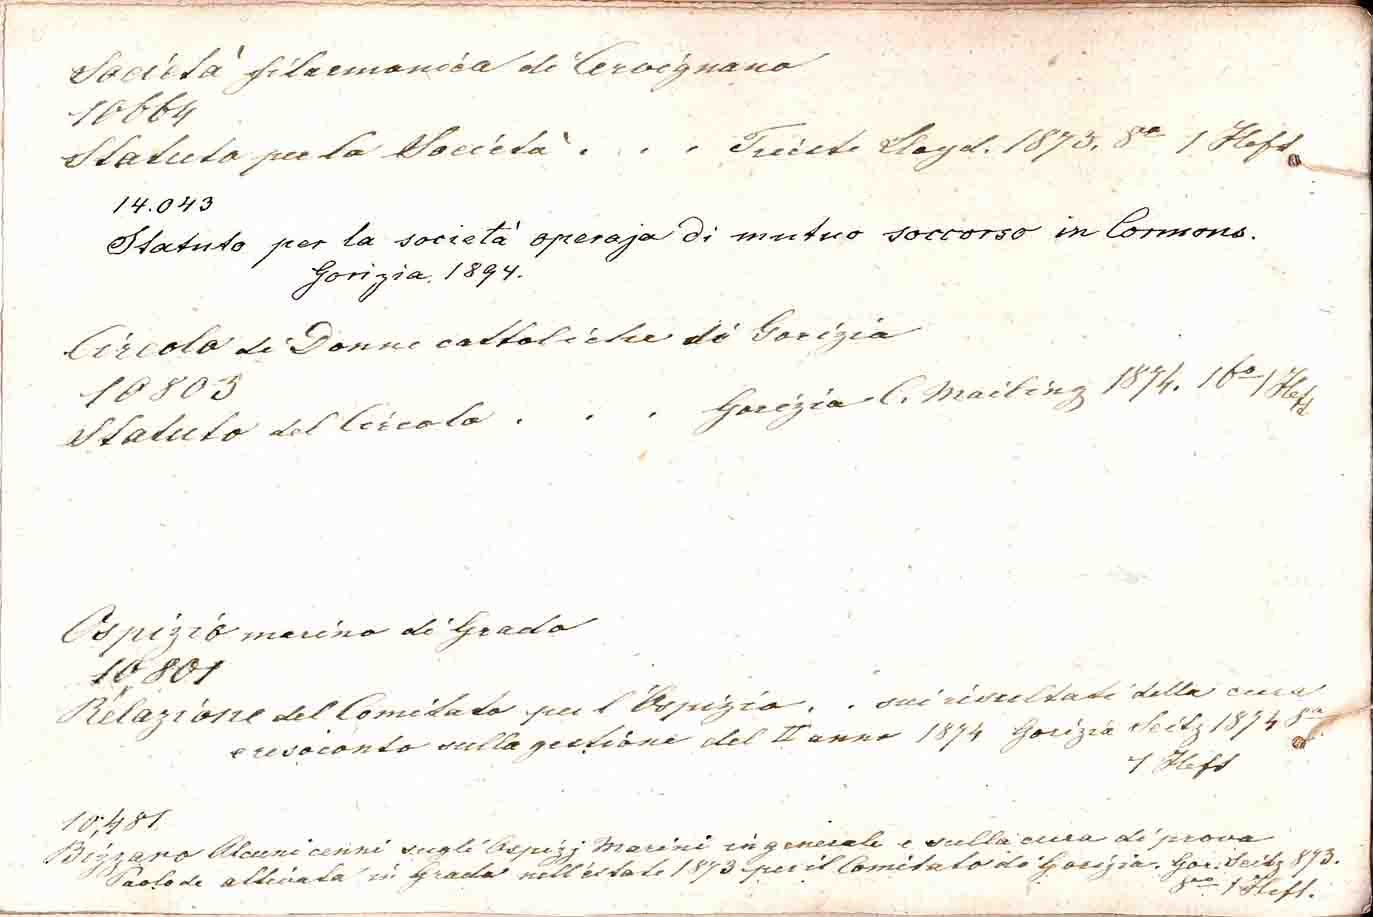 Società filarmonica di Cervignano
10664
Statuto per la Società . . . Trieste Lloyd. 1873. 8vo 1 Heft
14.043
Statuto per la società operaja di mutuo soccorso in Cormons.
Gorizia. 1894.
Circolo di Donne cattoliche di Gorizia
10803
Statuto del Circolo . . . Gorizia C. Mailing 1874. 16o 1 Heft
Ospizio marino di Grado
10,801
Relazione del Comitato per l'Ospizio . . sui risultati della cura
e resoconto sulla gestione del II anno 1874 Gorizia Seitz 1874 8vo
1 Heft
10,481
Bizzaro Alcuni cenni sugli Ospizj Marini in generale e sulla cura di prova
Paolo de attivata in Grado nell'estate 1873 per il Comitato di Gorizia. Gor. Seitz 873.
8vo 1 Heft.